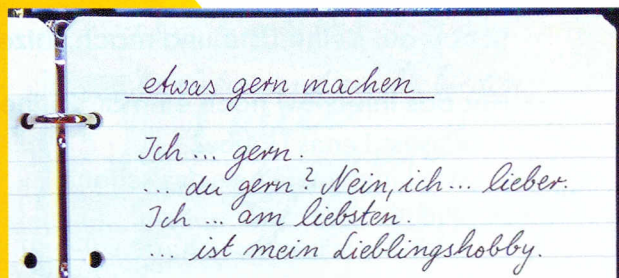 etwas gern machen
Ich ... gern.
... du gern? Nein, ich ... lieber.
Ich ... am liebsten.
... ist mein Lieblingshobby.